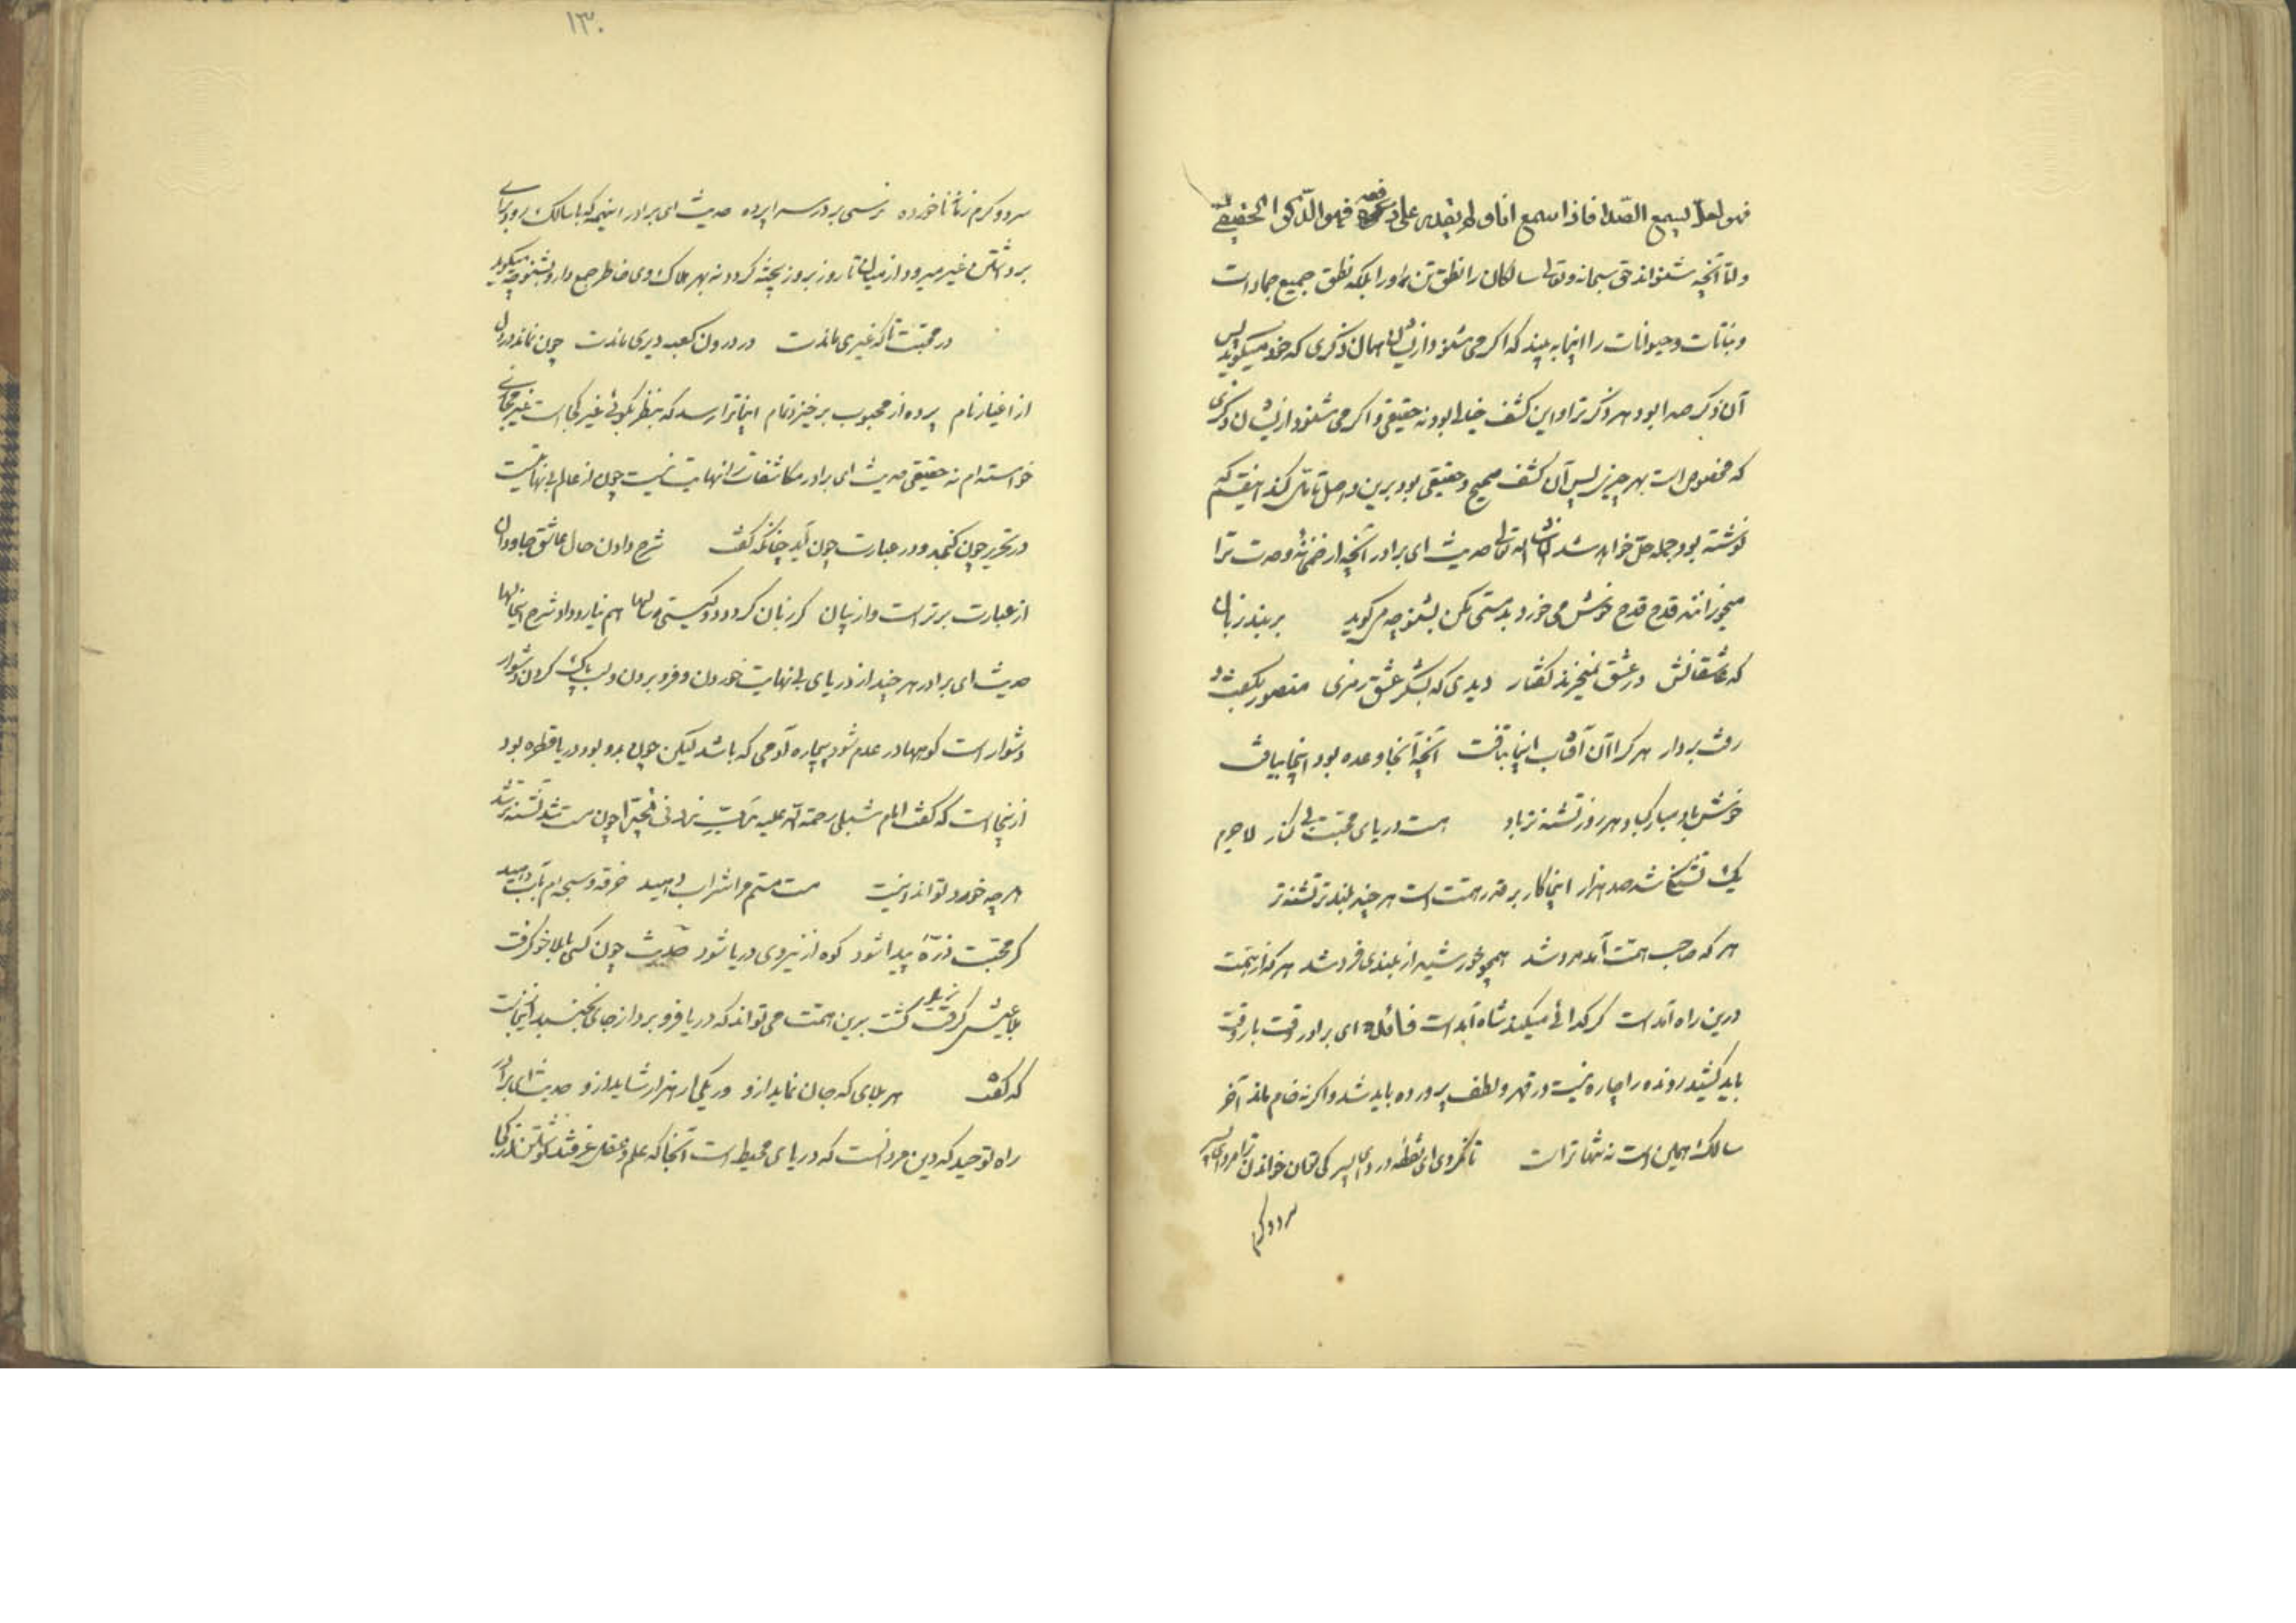 فهو لعلّ یسمع الصّدا فاذا سمع انا و لم یقدر علی دفعه فهو الذّکر الحقیقی
و لقا آنچه شنواند حق سبحانه و تعالی سالکان را نطق تن مراو را بلکه نطق جمیع جمادات
و نباتات و حیوانات را اینجا به بیند که اکر می شنود از ایشان همان ذکری که خود میکوید پس
آن ذکر صدا بود مر ذکر ترا و این کشف خیالی بود نه حقیقی و اکر می شنود از ایشان ذکری
که مخصوص است بهر چیزی پس آن کشف صحیح و حقیقی بود برین اصل تامل کند اینقدر که
نوشته بود جمله حل خواهد شد انشاء الله تعالی حدیث ای برادر آنچه از خمخانه وحدت ترا
میخورانند قدح قدح خوش می خور و بدمستی مکن بشنو چه میکوید بربند زبان
که عاشقانش در عشق نمیخرند کفتار دیدی که بسکر عشق رمزی منصور بکفت و
رفت بر دار هر کرا آن آفتاب اینجا بتافت آنچه آنجا وعده بود اینجا بیافت
خوش باد مبارک باد هر روز تشنه تر باد هست دریای محبت بی کنار لاجرم
یک تشنکی شد صد هزار اینجا کار بر قدر همتست است هر چند بلندتر تشنه تر
هر که صاحب همت آمد مرد شد همچو خورشید از بلندی فرد شد هر کدا از همت
درین راه آمد است کر کدائی میکند شاه آمد است فائده ای برادر وقت بار وقت
باید کشید رونده را چاره نیست در قهر و لطف پرورده باید شد و اکر نه خام ماند آخر
سالک همین است نه تنها تراست تا نکردی ای نطفه در دای پسر کی توان خواندن ترا مرد ای پسر
سرد و کرم
۱۳۰
سرد و کرم زمانه ناخورده نرسی بر در سرا پرده حدیث ای برادر اینهمه که با سالک رود برای
برداشتن غیر میرود از میان تا روز بروز پخته کردد نه بهر هلاک وی خاطر جمع دار و بشنو چه میکوید
در محبت تا که غیری ماندست در درون کعبه دیری ماندست چون نماند در دل
از اغیار نام پرده از محبوب برخیزد تمام اینجا ترا رسد که بنظر بکوئی غیر کجا است غیر مجازی
خواسته ام نه حقیقی حدیث ای برادر مکاشفات را نهایت نیست چون از عالم بی نهایتست
در تحریر چون کنجد و در عبارت چون آید چنانکه کفت شرح دادن حال عاشق جاودان
از عبارت برتر است و از بیان کر زبان کردد دو کیتی سالها هم نیارد داد شرح این حالها
حدیث ای برادر هر چند از دریای بی نهایت خوردن و فرو بردن و لب پاک کردن دشوار
دشوار است کوهها در عدم شود بیچاره آدمی که باشد لیکن چون مدد بود دریا قطره بود
ازینجا است که کفت امام شبلی رحمة الله علیه یا رب زدنی تحیرا چون مست شد تشنه تر شد
هر چه خورد تواند نیست مست مستم مرا شراب دهید خرقه و سبحه ام بآب دهید
کر محبت ذرّۀ پیدا شود کوه از نیروی دریا شود حدیث چون کسی با بلا خو کرفت
بلا عیش کرفت زیور کشت برین همت می تواند که دریا فرو برد از جای نجنبد اینجاست
که کفت هر بلای که جان نماید ازو در یکی کار هزار شاید ازو حدیث ای برادر
راه توحید که دین مردانست که دریای محیط است آنجا که علم و عقل غرقند